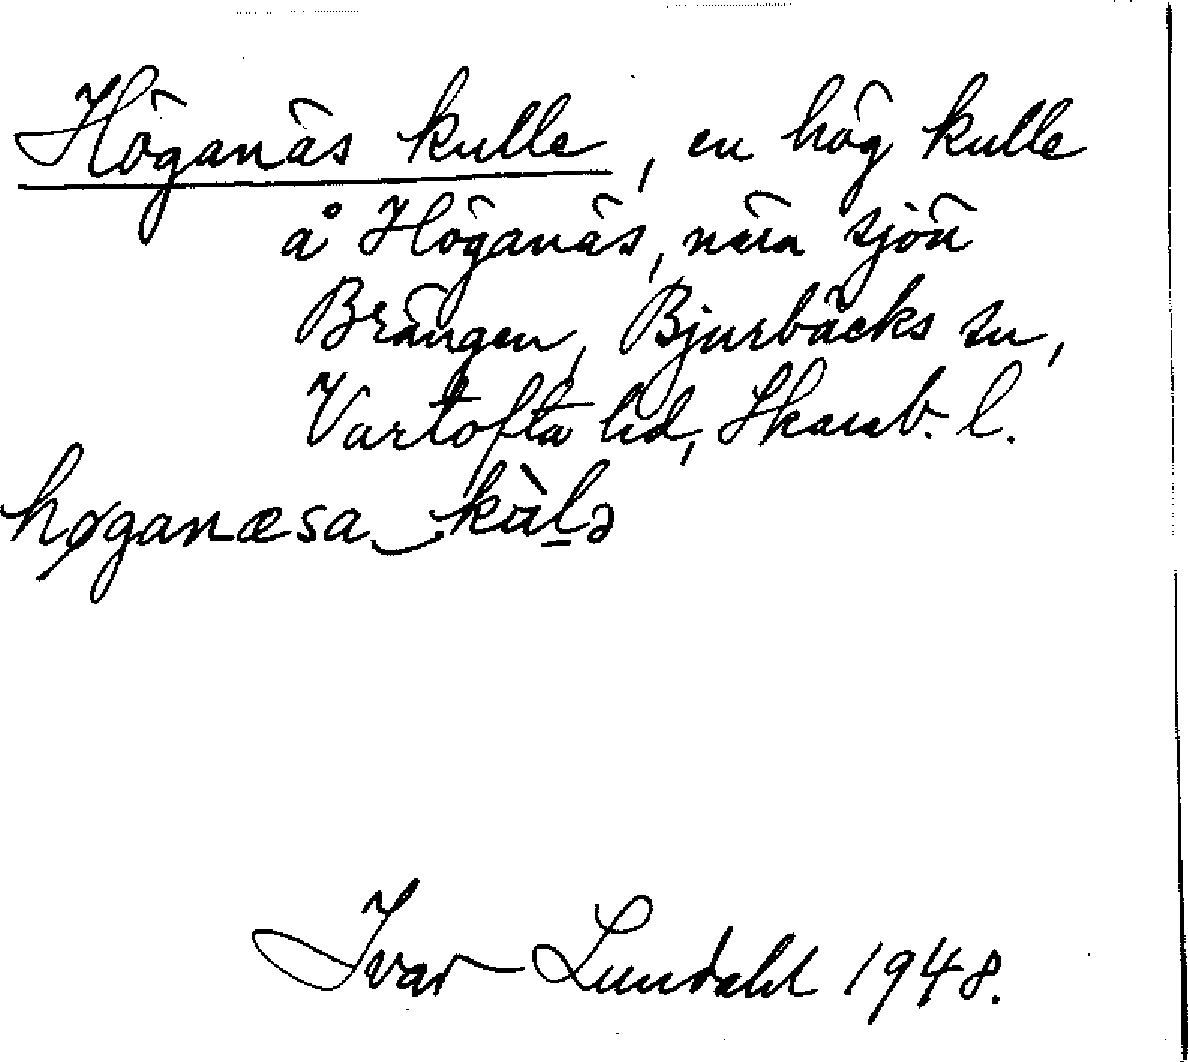 Höganäs kulle, en hög kulle
å Höganäs, nära sjön
Brängen, Bjurbäcks sn,
Vartofta hd, Skarab. l.
høganæsa kàlə
Ivar Lundahl 1948.